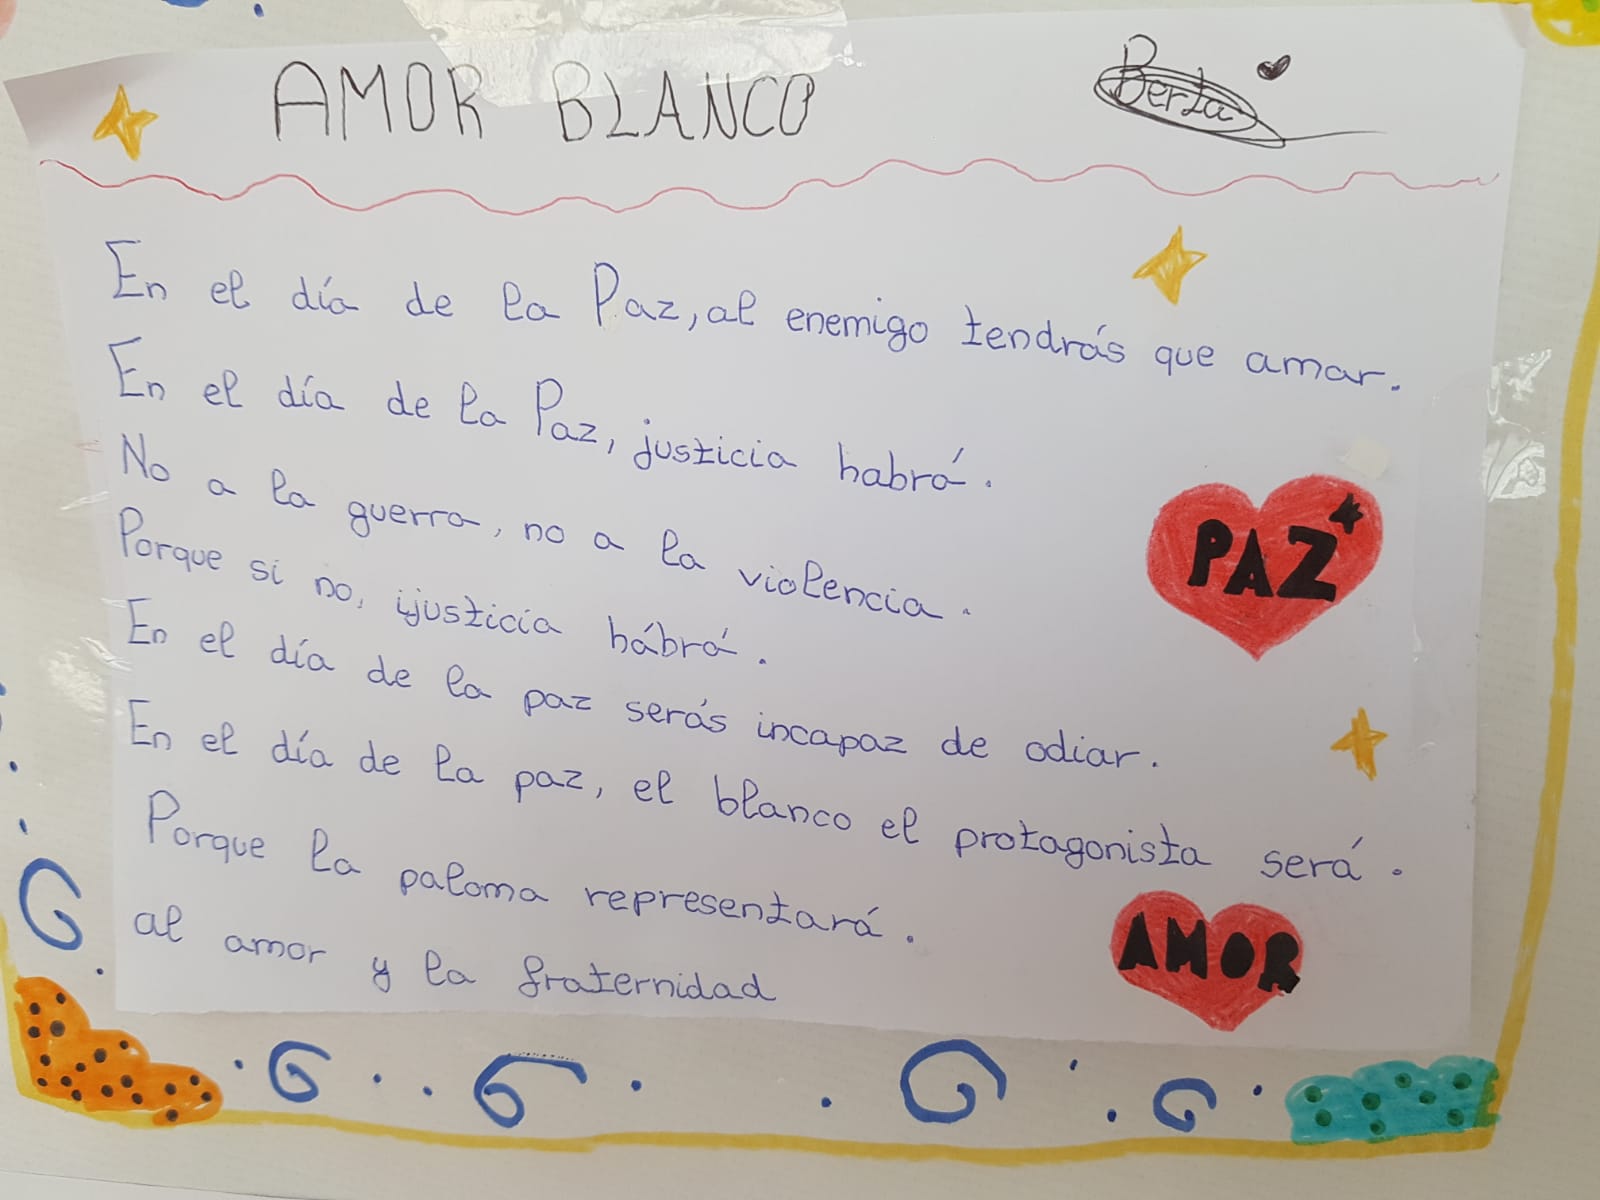 AMOR BLANCO
Berta
En el día de la Paz, al enemigo tendrás que amar.
En el día de la Paz, justicia habrá.
No a la guerra, no a la violencia.
Porque si no, ijusticia hábrá.
En el día de la paz serás incapaz de odiar.
En el día de la paz, el blanco el protagonista será.
Porque la paloma representará.
al amor y la fraternidad
PAZ
AMOR